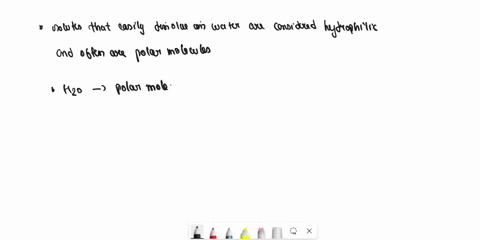 • solutes that easily dissolve in water are considered hydrophilic
and often are polar molecules
• H2O → polar mole